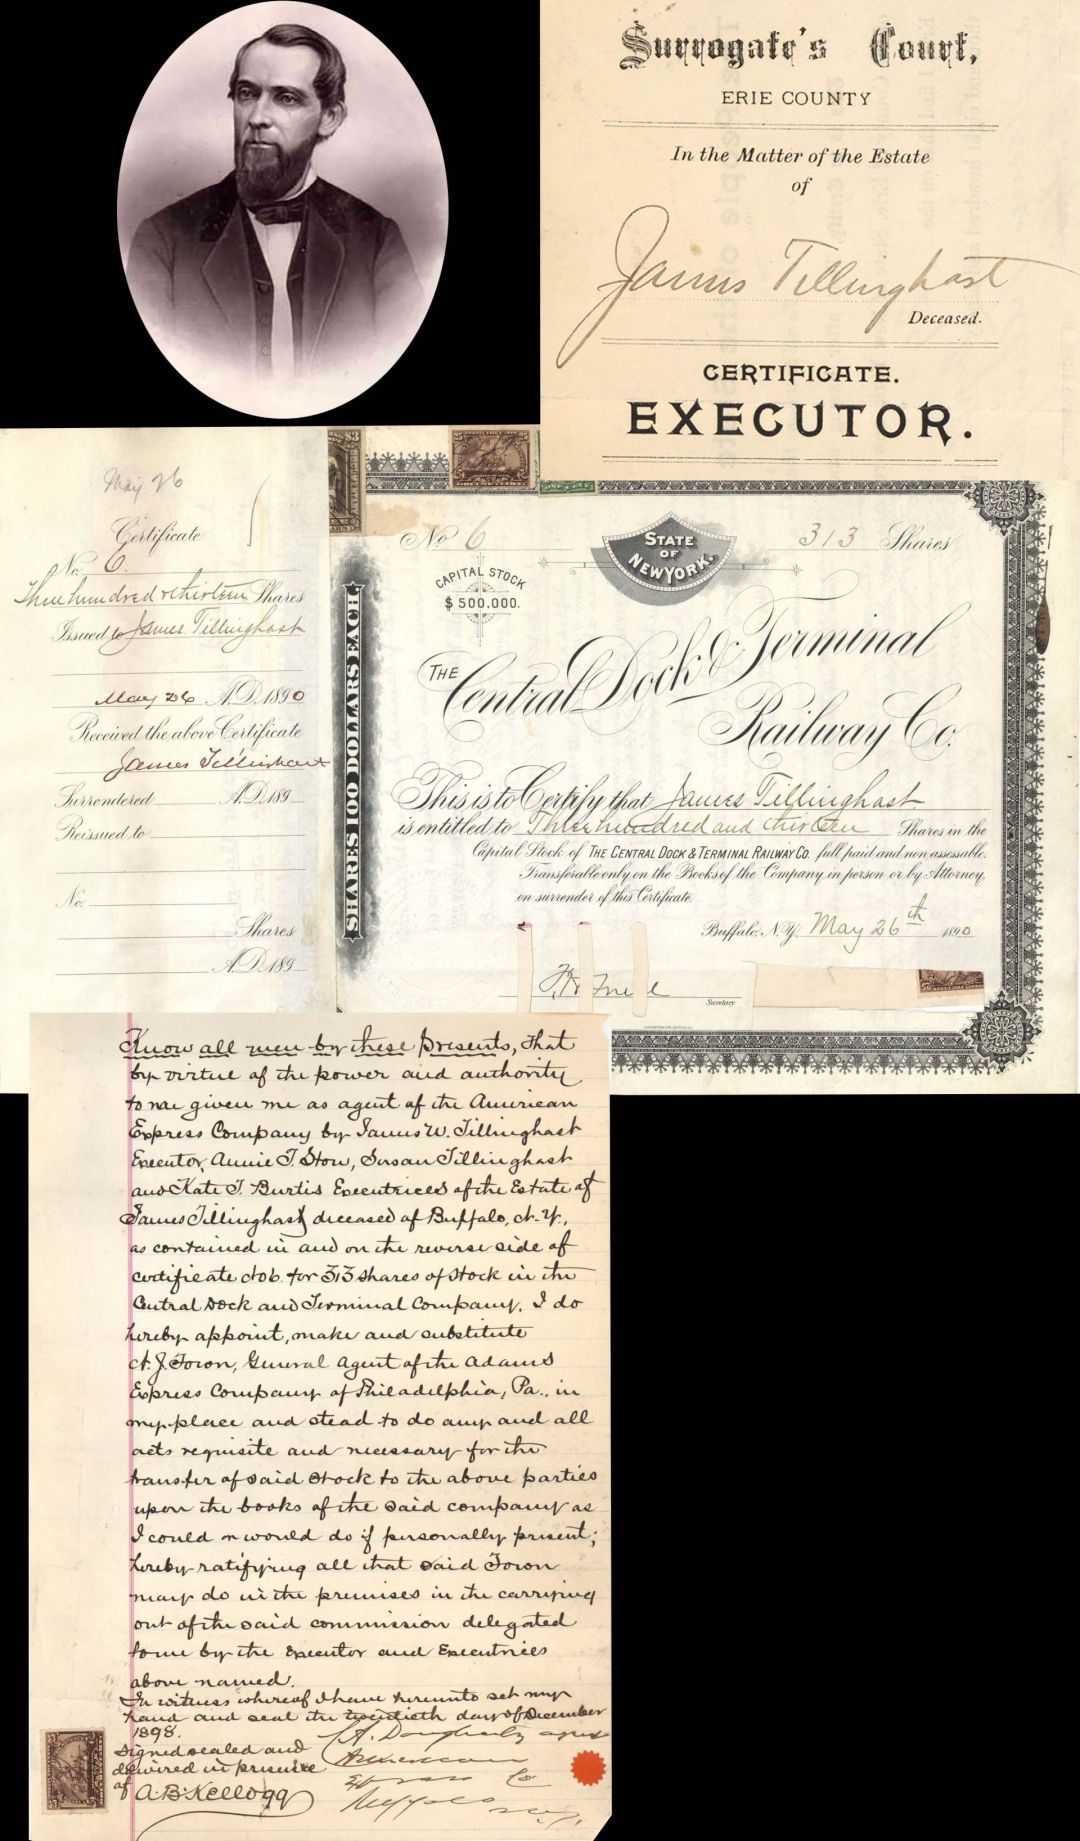 Surrogate's Court,
ERIE COUNTY
In the Matter of the Estate
of
James Tillinghast
Deceased.
CERTIFICATE.
EXECUTOR.
May 26
Certificate
No. 6.
Three hundred & thirteen Shares
Issued to James Tillinghast
May 26 A.D. 1890
Received the above Certificate
James Tillinghast
Surrendered A.D. 189
Reissued to
No.
Shares
A.D. 189
$3
SHARES 100 DOLLARS EACH
No 6
STATE
OF
NEW YORK.
313 Shares
CAPITAL STOCK
$500,000.
THE
Central Dock & Terminal
Railway Co.
This is to Certify that James Tillinghast
is entitled to Three hundred and thirteen Shares in the
Capital Stock of THE CENTRAL DOCK & TERMINAL RAILWAY CO. full paid and non-assessable.
Transferable only on the Books of the Company in person or by Attorney,
on surrender of this Certificate.
Buffalo, N.Y. May 26th 1890
Secretary.
Know all men by these presents, that
by virtue of the power and authority
to me given me as agent of the American
Express Company by James W. Tillinghast
Executor, Annie T. Stow, Susan Tillinghast
and Kate T. Burtis Executrices of the Estate of
James Tillinghast deceased of Buffalo, N.Y.
as contained in and on the reverse side of
certificate No 6. for 313 shares of stock in the
Central Dock and Terminal Company. I do
hereby appoint, make and substitute
N. J. Town, General Agent of the Adams
Express Company of Philadelphia, Pa., in
my place and stead to do any and all
acts requisite and necessary for the
transfer of said stock to the above parties
upon the books of the said company as
I could or would do if personally present;
hereby ratifying all that said Town
may do in the premises in the carrying
out of the said commission delegated
to me by the Executor and Executrices
above named.
In witness whereof I have hereunto set my
hand and seal the twentieth day of December
1898.
Signed sealed and
delivered in presence
of A. B. Kellogg
A. Dougherty agent
American
Ex Co
Buffalo N.Y.